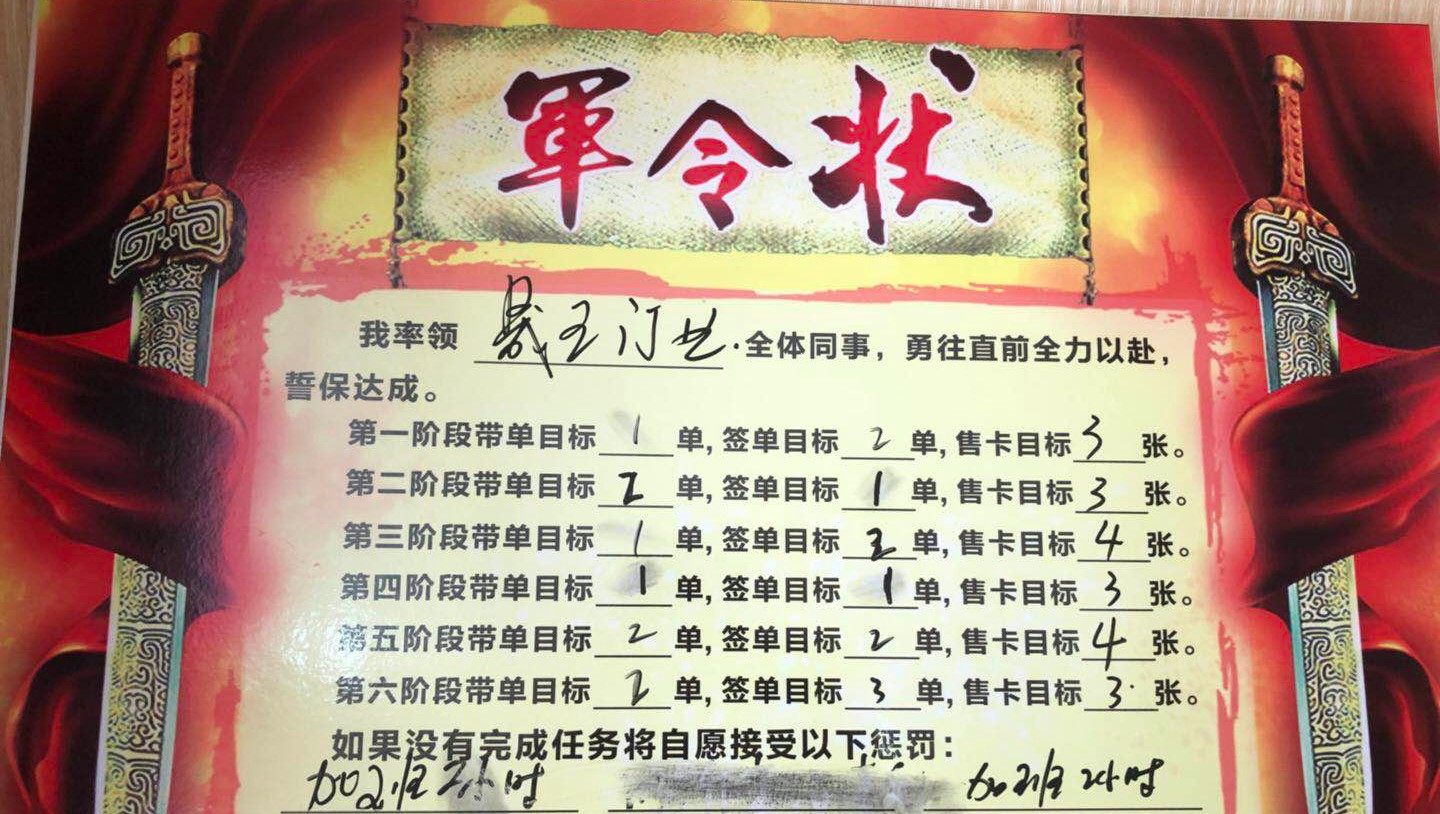 軍令状
我率领 晟王门业.全体同事，勇往直前全力以赴，
誓保达成。
第一阶段带单目标 1 单, 签单目标 2 单, 售卡目标 3 张。
第二阶段带单目标 2 单, 签单目标 1 单, 售卡目标 3 张。
第三阶段带单目标 1 单, 签单目标 2 单, 售卡目标 4 张。
第四阶段带单目标 1 单, 签单目标 1 单, 售卡目标 3 张。
第五阶段带单目标 2 单, 签单目标 2 单, 售卡目标 4 张。
第六阶段带单目标 2 单, 签单目标 3 单, 售卡目标 3 张。
如果没有完成任务将自愿接受以下惩罚：
加班2小时 加班2小时